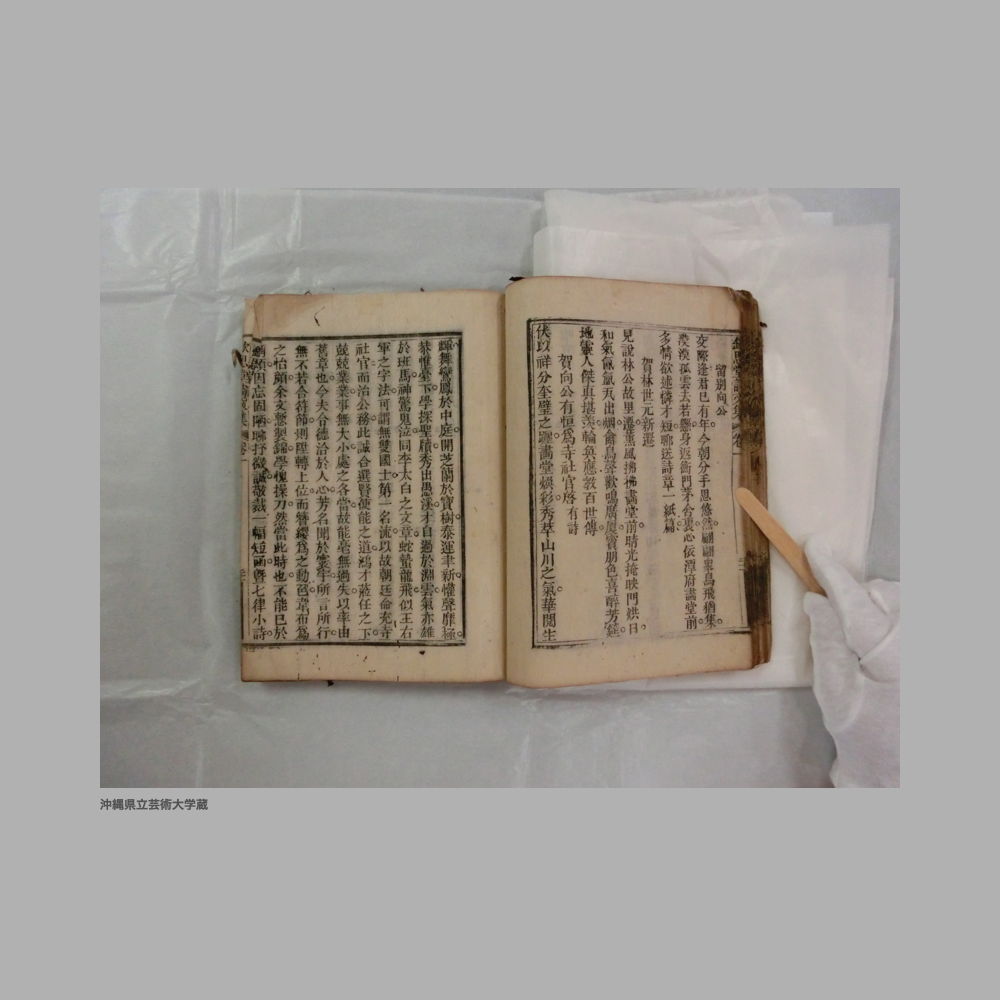 欽思堂詩文集 卷一
留別向公
交際逢君已有年。今朝分手思悠然。翩翩衆鳥飛猶集。
漠漠孤雲去若
身返衡門茅舍裏。心依潭府畵堂前。
多情欲述憐才短。聊送詩章一紙篇。
賀林世元新遷
見說林公故里遷。薰風拂拂畵堂前。晴光掩映門烘日。
和氣氤氳瓦出烟。禽鳥聲歡鳴廣厦。賓朋色喜醉芳筵。
地靈人傑眞堪羨。輪奐應教百世傳。
賀向公有恒爲寺社官啓有詩
伏以祥分奎璧之躔。畵堂煥彩。秀萃山川之氣。華閥生
輝。舞鸞鳳於中庭。開芝蘭於寳樹。泰運聿新。懽聲靡極。
恭惟臺下學探聖
秀出愚溪。才自過於淵雲。氣亦雄
於班馬。神驚鬼泣。同李太白之文章。蛇蟄龍飛。似王右
軍之字法。可謂無雙國士。第一名流。以故朝廷命充寺
社官而治公務。此誠合選賢使能之道。鴻才蒞任之下。
兢兢業業。事無大小。處之各當。故能毫無過失。以率由
舊章也。今夫合德洽於人心。芳名聞於寰宇。所言所行。
無不若合符節。則陞轉上位。而簪纓爲之動色。韋布爲
之怡顔。朱文慙製錦。學愧操刀。然當此時也。不能已於
因忘固陋。聊抒微誠。敬裁一幅短函。曁七律小詩。